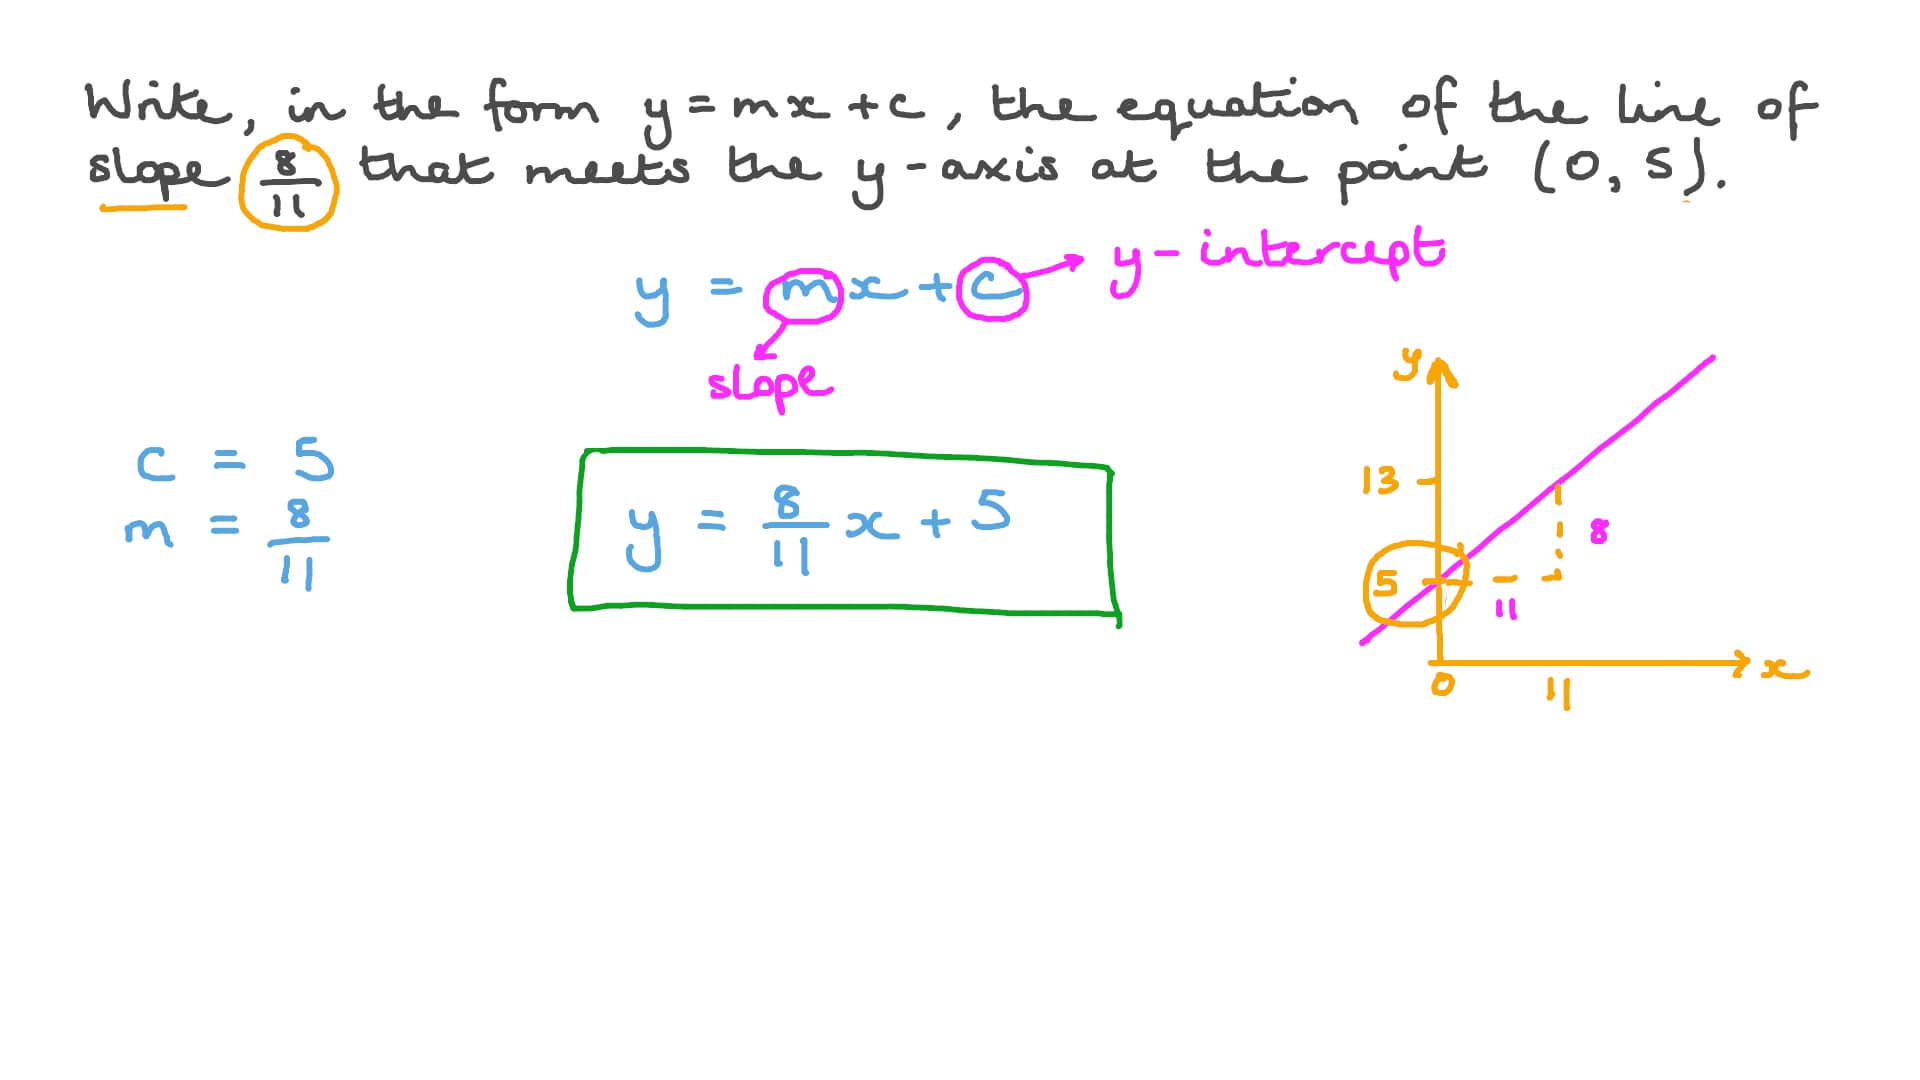 Write, in the form y = mx + c, the equation of the line of
slope 8/11 that meets the y-axis at the point (0, 5).
y = mx + c → y-intercept
slope
c = 5
m = 8/11
y = 8/11 x + 5
y
13
8
5
11
x
0
11